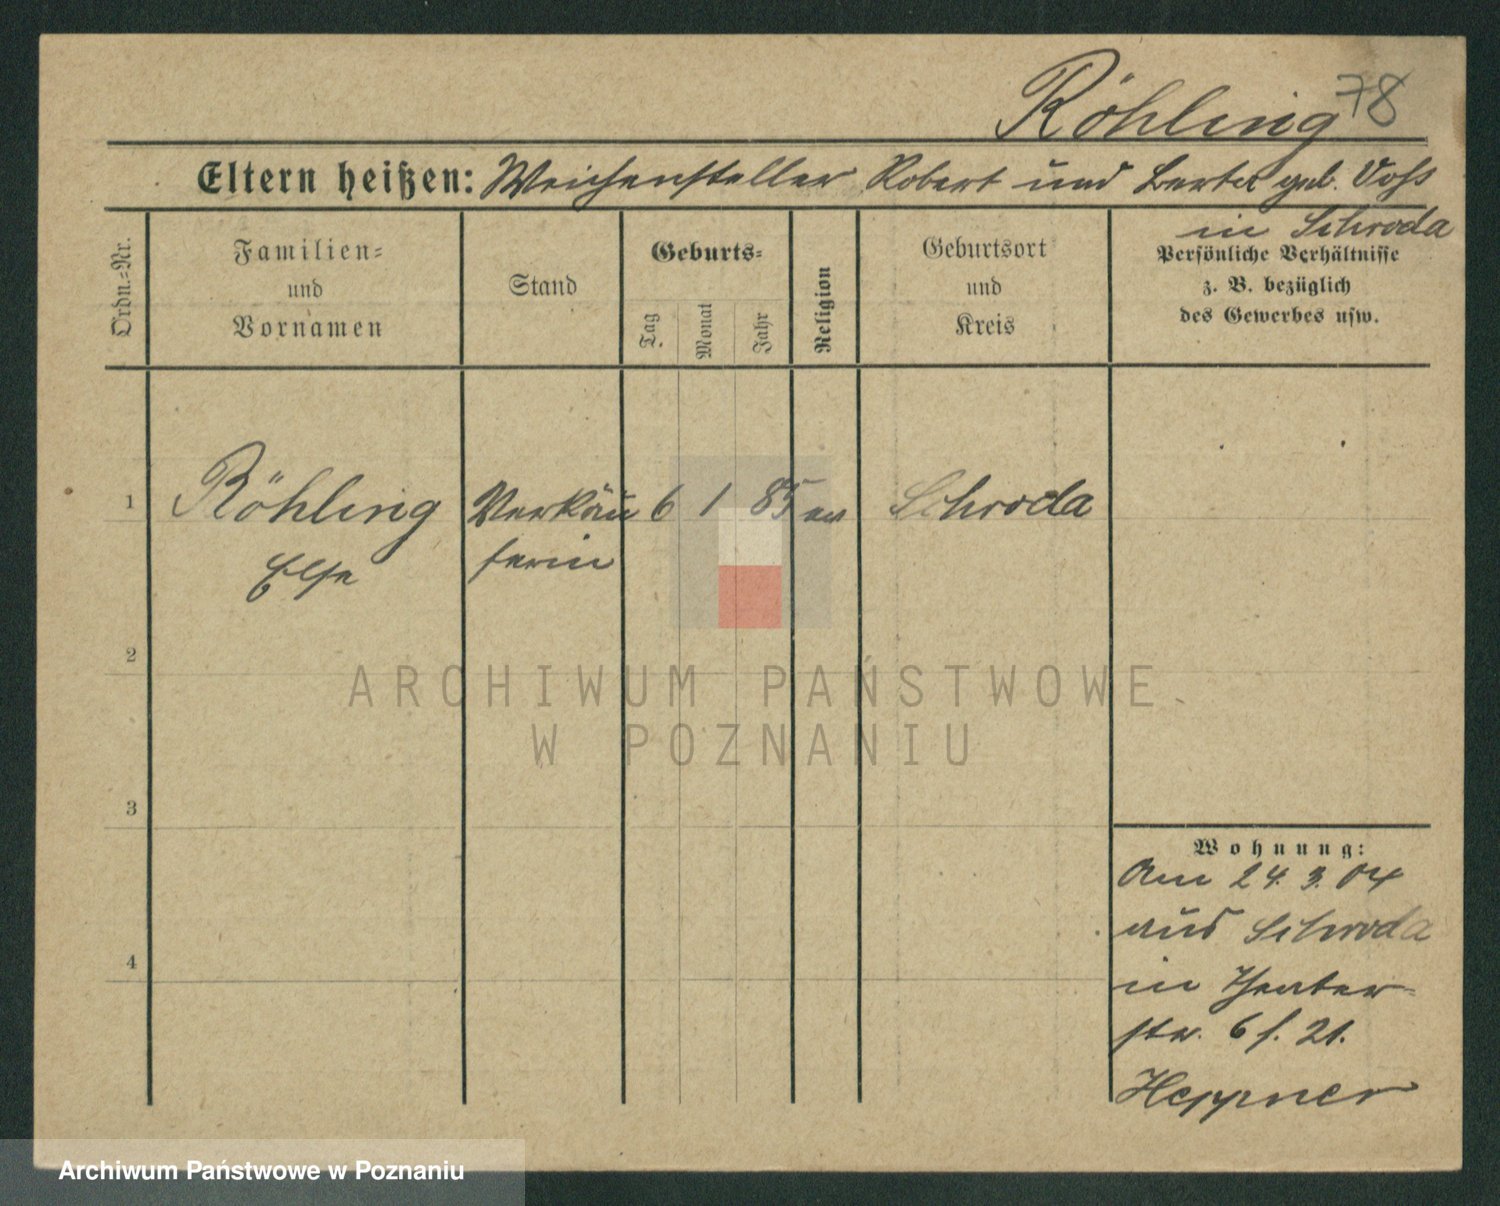 Röhling 78
Eltern heißen: Weichensteller Robert und Berta geb. Voss
in Schroda
Ordn.=Nr.
Familien=
und
Vornamen
Stand
Geburts=
Tag
Monat
Jahr
Religion
Geburtsort
und
Kreis
Persönliche Verhältnisse
z. B. bezüglich
des Gewerbes usw.
1 Röhling Verkäu 6 1 85 ev Schroda
Else ferin
2
3
4
Wohnung:
Am 24. 3. 04
aus Schroda
in Theater-
str. 6 f. 21.
Heppner
ARCHIWUM PAŃSTWOWE
W POZNANIU
Archiwum Państwowe w Poznaniu